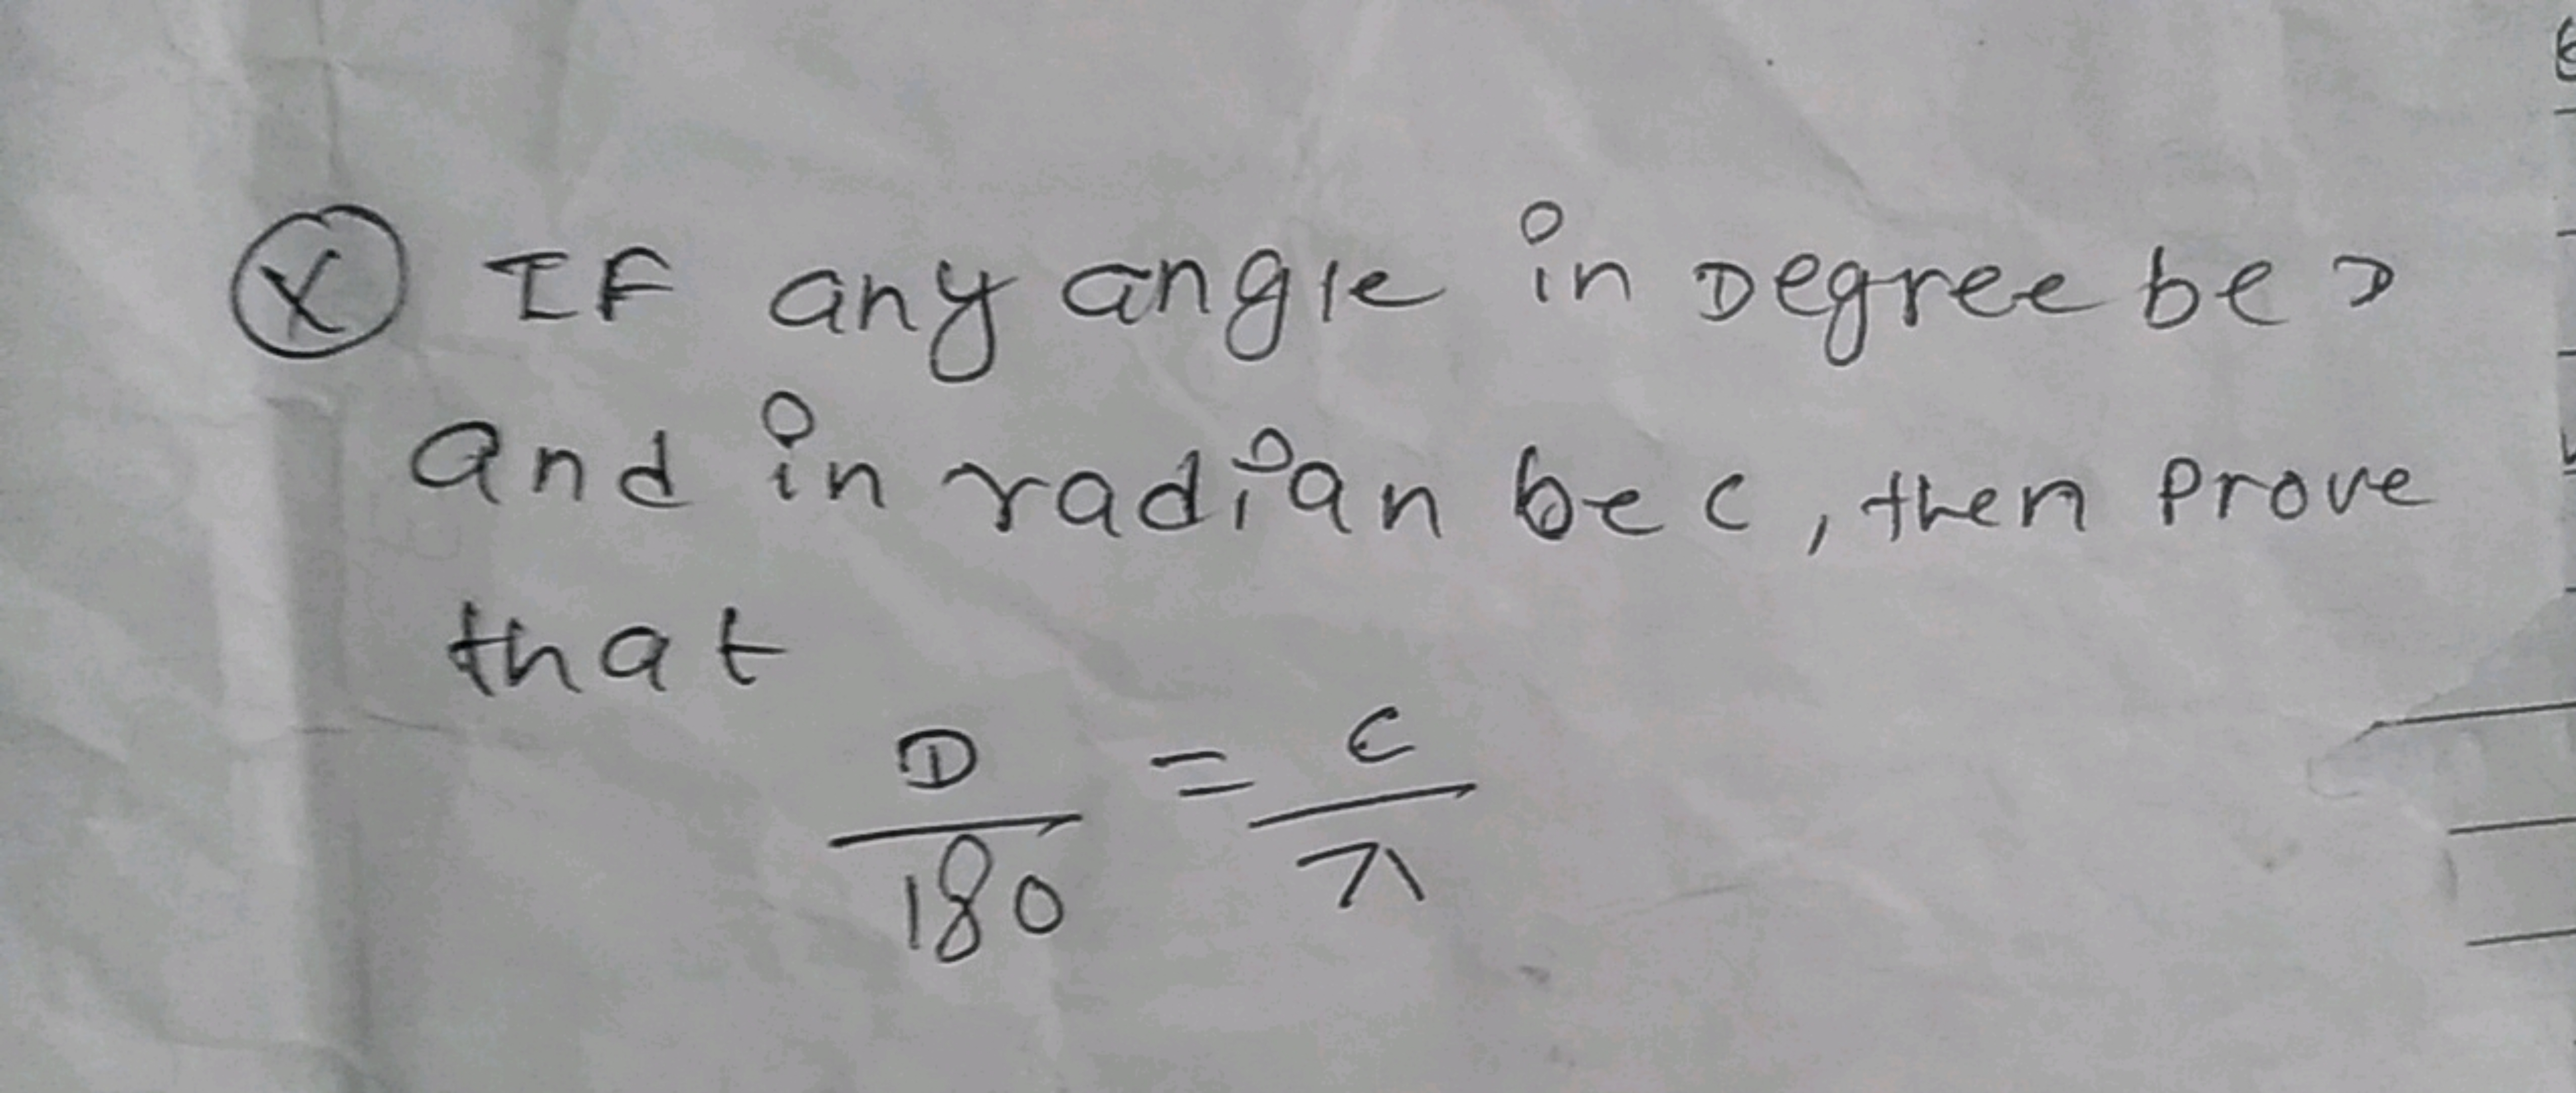 Ⓧ IF any angle in Degree be D
and in radian be c, then prove
that
D/180 = C/π